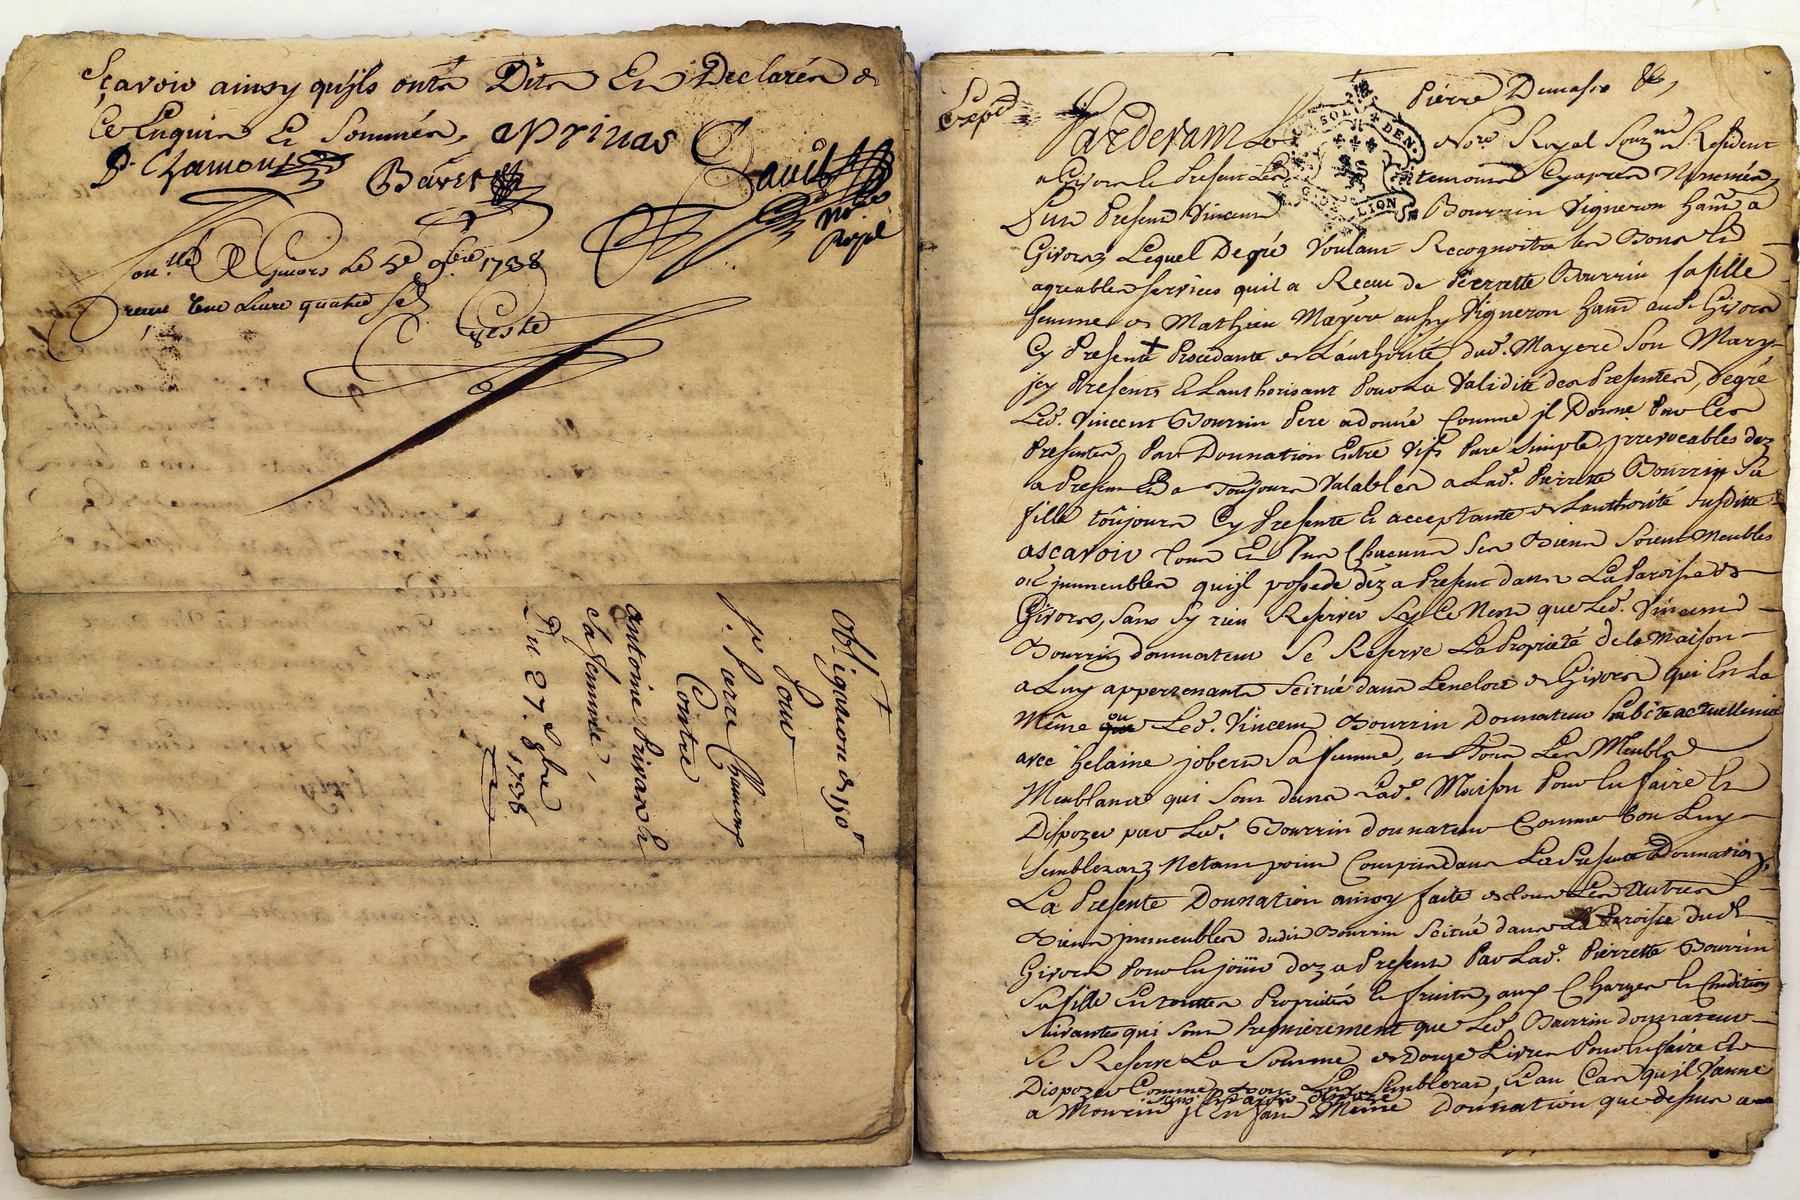 Sçavoir ainsy qu'jls ont Dit Et Declaré de
Ce Enquis Et Sommés, aprivas
P. Chamous Baret David
No.re
Royal
Con.llé A Givors Le 5e 9bre 1738
receu une Livre quatre sols
Geste
Obligation de 150 lt
Pour
Sr. Pierre Chamous
Contre
antoine Privas Et
Sa femme,
Du 27.e 8bre
1738
Expd
Pierre Dumas
Pardevant Le No.re Royal Souz.né Resident
a Givors le Present Les temoins Cyapres Nommés,
Fut Present Vincent Bourrin Vigneron hant a
Givors, Lequel De gré Voulant Recognoitre les Bons Et
agreables services qu'il a Receu de Pierrette Bourrin sa fille
femme de Mathieu Mayere aussy Vigneron hant aud. Givors
Cy Presente Procedante de L'authorité dud. Mayere Son Mary
jcy Present Et Lauthorisant Pour La Validité des Presentes, de gré
Led. Vincent Bourrin Pere a donné Comme jl Donne Par Ces
Presentes Par Donnation Entre Vifs Pure Simple jrrevocables dez
a Present Et a Toujours Valables a Lad. Pierrette Bourrin Sa
fille toujours Cy Presente Et acceptante de L'authorité Susditte
ascavoir tous Et Un Chacuns Ses Biens Soient Meubles
ou jmmeubles qu'jl possede dez a Present dans La Paroisse de
Givors, Sans Sy rien Reserver Sy Ce Nest que Led. Vincent
Bourrin donnateur Se Reserve La Proprieté de la Maison
a Luy appartenante Scitué dans Lenclos de Givors qui Est La
Même ou Led. Vincent Bourrin Donnateur habite actuellement
avec helaine jobert Sa femme, et Tous Les Meubles
Meublants qui Sont dans Lad. Maison Pour En faire Et
Disposer par Led. Bourrin donnateur Comme bon Luy
Semblera, Netant point Compris dans La Presente Donnation,
La Presente Donnation ainsy faite de tous Les Autres
Biens jmmeubles dudit Bourrin Scitué dans La Paroisse dud.
Givors Pour En jouir dez a Present Par Lad. Pierrette Bourrin
Sa fille En toutes Proprietés Et fruits, aux Charges Et Conditions
Suivantes qui Sont Premierement que Led. Bourrin donnateur
Se Reserve La Somme de douze Livres Pour En faire Et
Disposer Comme bon Luy Semblera, Et au Cas qu'jl Vienne
a Mourir sans En avoir disposé jl En fait Même Donnation que dessus a